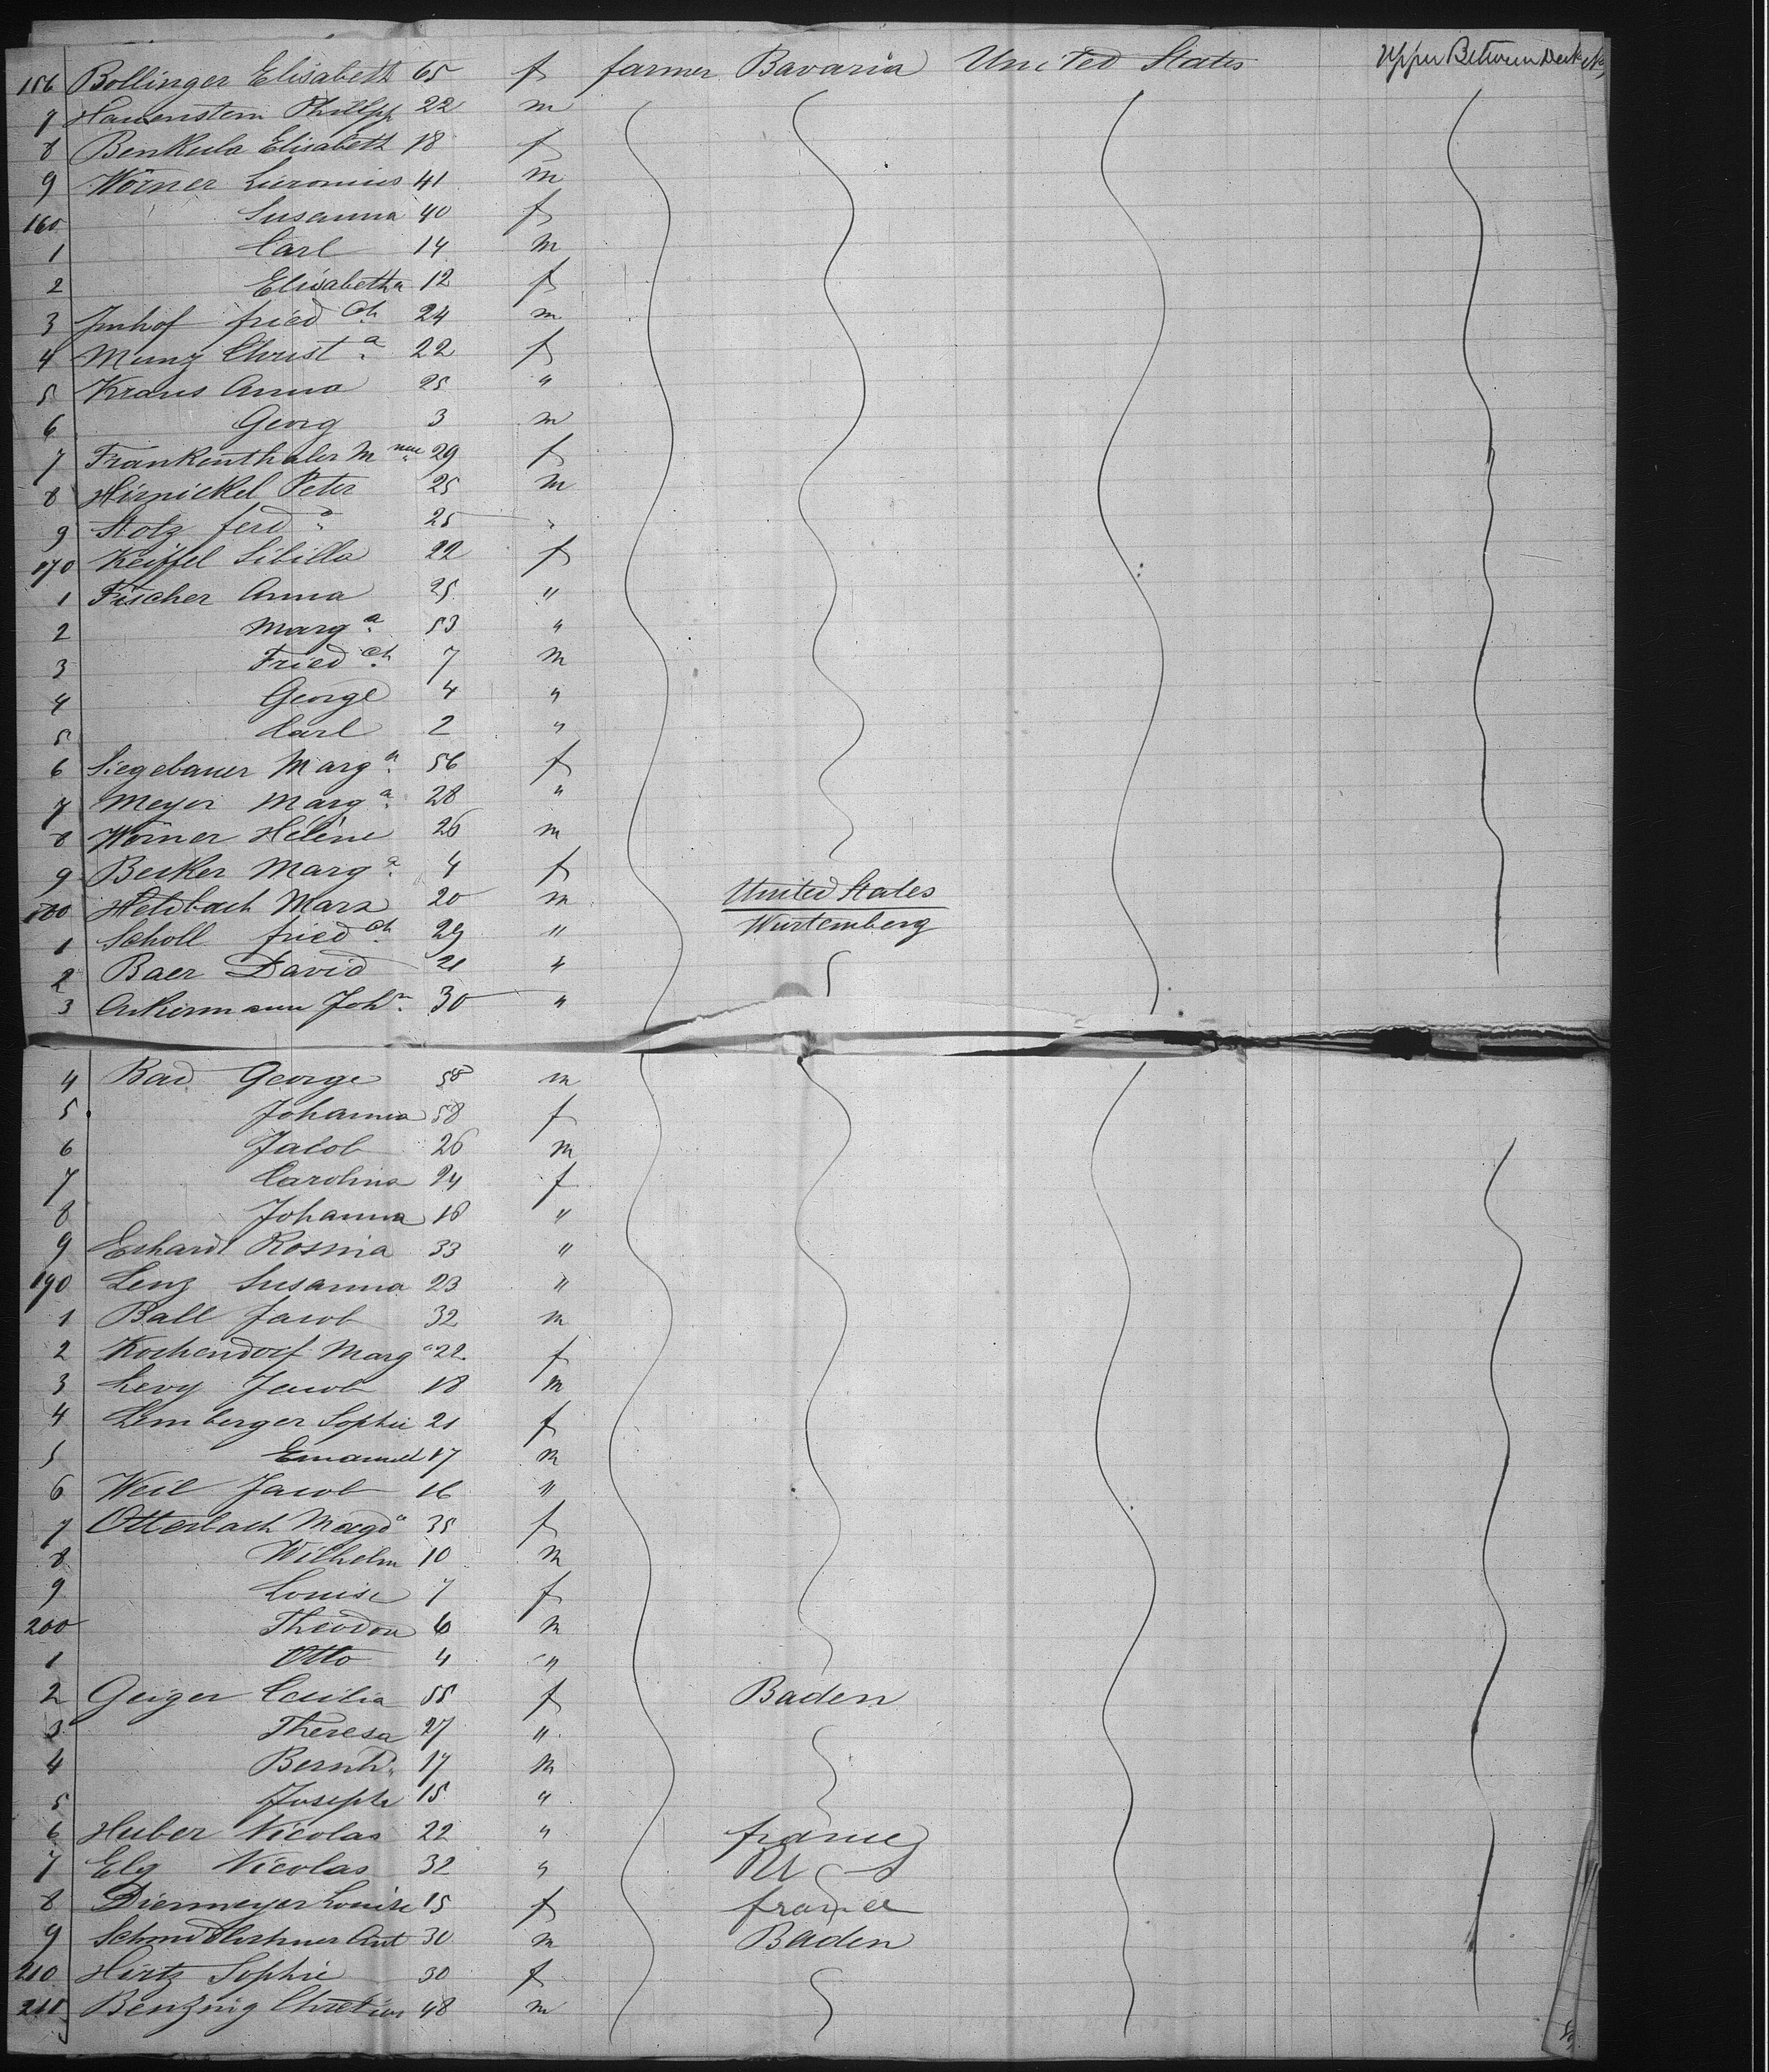 156 Bollinger Elisabeth 65 f farmer Bavaria United States Upper Between Deck
7 Hauenstein Phillpp 22 m
8 Benkula Elisabeth 18 f
9 Wörner 41 m
160 Susanna 40 f
1 Carl 14 m
2 Elisabetha 12 f
3 Imhof fried ch. 24 m
4 Munz Christ a. 22 f
5 Kraus Anna 25 "
6 Georg 3 m
7 Frankenthaler M 29 f
8 Hirnickel Peter 25 m
9 Stolz ferd d. 25 "
170 Keiffel Sibilla 22 f
1 Fischer Anna 25 "
2 Marg a. 53 "
3 Fried ch. 7 m
4 George 4 "
5 Carl 2 "
6 Siegebauer Marg a. 56 f
7 Meyer Marg a. 28 "
8 Wörner Hélène 26 m
9 Becker Marg a. 4 f
180 Marx 20 m United States
1 Scholl fried ch. 29 " Wurtemberg
2 Baer David 21 "
3 Ankermann Joh n. 30 "
4 Bad George 58 m
5 Johanna 58 f
6 Jacob 26 m
7 Carolina 24 f
8 Johanna 18 "
9 Erhard Rosina 33 "
190 Lenz Susanna 23 "
1 Ball Jacob 32 m
2 Kochendorf Marg a 22 f
3 Levy Jacob 18 m
4 Lemberger Sophie 21 f
5 Emanuel 17 m
6 Weil Jacob 16 "
7 Otterbach Magd a 35 f
8 Wilhelm 10 m
9 Louise 7 f
200 Theodor 6 m
1 Otto 4 "
2 Geiger Cecilia 55 f Baden
3 Theresa 27 "
4 Bernh d. 17 m
5 Joseph 15 "
6 Huber Nicolas 22 " france
7 Elg Nicolas 32 " U S
8 Diermeyer Louise 15 f france
9 Ant 30 m Baden
210 Hirtz Sophie 30 f
211 Benzing Chretien 48 m